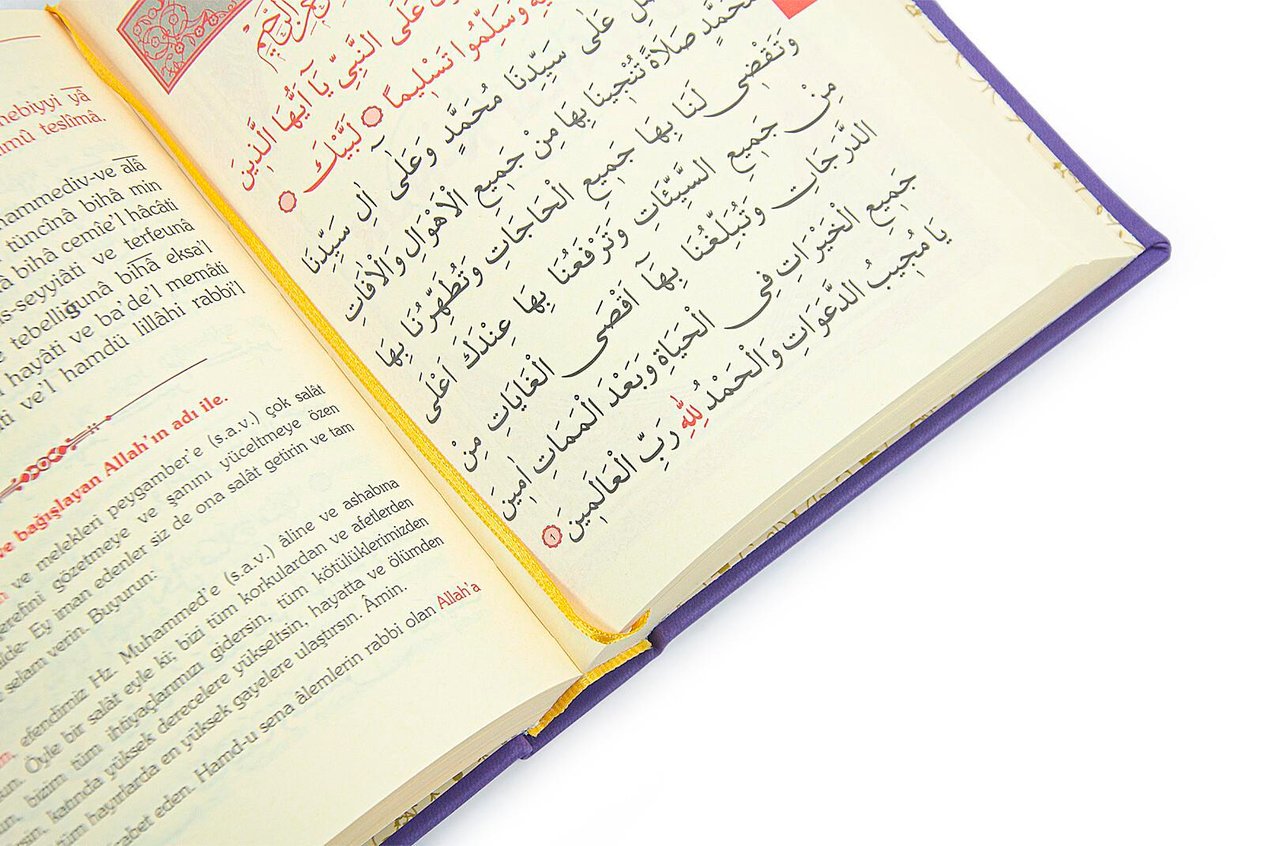 nebiyyi yâ
teslîmâ.
ve alâ
tüncînâ bihâ min
bihâ cemîe'l hâcâti
seyyiâti ve terfeunâ
tebelliğunâ bihâ eksa'l
hayâti ve ba'de'l memâti
ve'l hamdü lillâhi rabbi'l
ve bağışlayan Allah'ın adı ile.
ve melekleri peygamber'e (s.a.v.) çok salât
şerefini gözetmeye ve şanını yüceltmeye özen
Ey iman edenler siz de ona salât getirin ve tam
selam verin. Buyurun:
efendimiz Hz. Muhammed'e (s.a.v.) âline ve ashabına
Öyle bir salât eyle ki; bizi tüm korkulardan ve afetlerden
bizim tüm ihtiyaçlarımızı gidersin, tüm kötülüklerimizden
katında yüksek derecelere yükseltsin, hayatta ve ölümden
tüm hayırlarda en yüksek gayelere ulaştırsın. Âmin.
eden. Hamd-u sena âlemlerin rabbi olan Allah'a
عَلَى النَّبِيِّ يَٓا اَيُّهَا الَّذ۪ينَ
وَسَلِّمُوا تَسْل۪يمًا لَبَّيْكَ
عَلٰى سَيِّدِنَا مُحَمَّدٍ وَعَلٰٓى اٰلِ سَيِّدِنَا
صَلَاةً تُنْج۪ينَا بِهَا مِنْ جَم۪يعِ الْاَهْوَالِ وَالْاٰفَاتِ
وَتَقْض۪ى لَنَا بِهَا جَم۪يعَ الْحَاجَاتِ وَتُطَهِّرُنَا بِهَا
مِنْ جَم۪يعِ السَّيِّئَاتِ وَتَرْفَعُنَا بِهَا عِنْدَكَ اَعْلَى
الدَّرَجَاتِ وَتُبَلِّغُنَا بِهَٓا اَقْصَى الْغَايَاتِ مِنْ
جَم۪يعِ الْخَيْرَاتِ فِى الْحَيَاةِ وَبَعْدَ الْمَمَاتِ اٰم۪ينَ
يَا مُج۪يبُ الدَّعَوَاتِ وَالْحَمْدُ لِلّٰهِ رَبِّ الْعَالَم۪ينَ ١